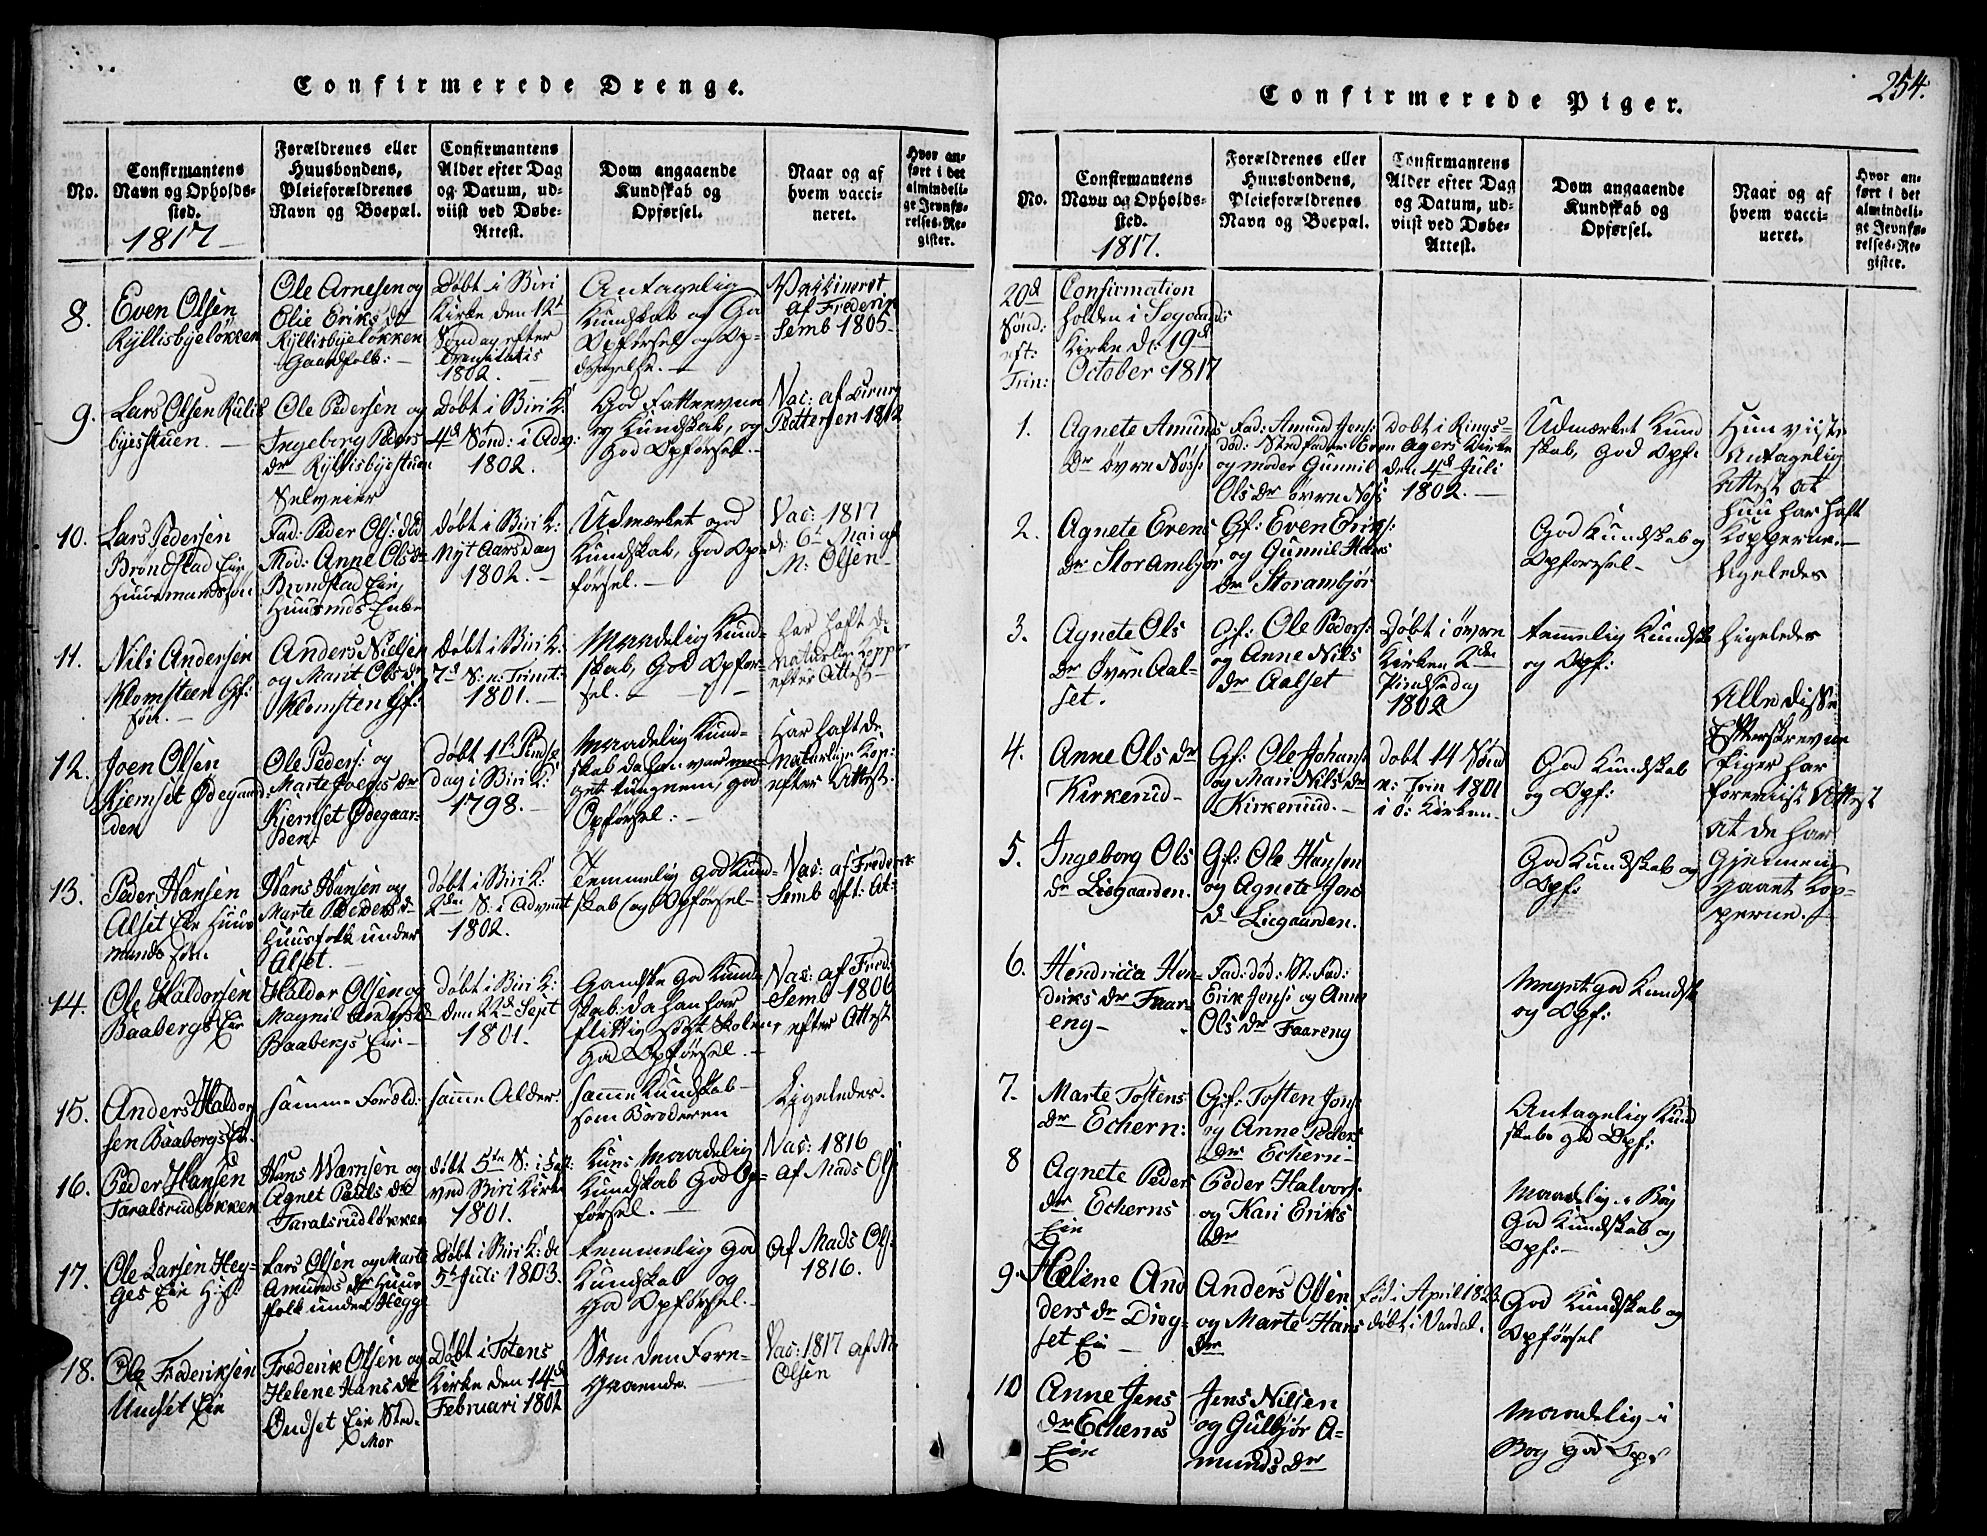 Confirmerede Drenge.
No.
Confirmantens
Navn og Opholds-
sted.
1817
Forældrenes eller
Huusbondens,
Pleieforældrenes
Navn og Boepæl.
Confirmantens
Alder efter Dag
og Datum, ud-
viist ved Døbe-
Attest.
Dom angaaende
Kundskab og
Opførsel.
Naar og af
hvem vacci-
neret.
Hvor an-
ført i det
almindeli-
ge Jevnfø-
relses-Re-
gister.
8.
Even Olsen
Kyllisbyeløkken
Ole Arnesen og
Olie Eriks dr
Kyllisbyeløkken
Gaardfolk:
Døbt i Biri
Kirke den 12t
Søndag efter
Trenitatis
1802.
Antagelig
Kundskab og
Opførsel og
Vaxineret
af Frederik
Semb 1805
9.
Lars Olsen Kylis
byestuen.
Ole Pedersen og
Ingeborg Peders
dr Kyllisbyestuen
Selveier
Døbt i Biri K:
4d Sønd: i Adv:
1802.
God
Kundskab, og
God Opførsel.
Vac: af
Pettersen 1812
10.
Lars Pedersen
Brøndstad Eie
Huusmandssøn
Fad: Peder Ols: død
Mod: Anne Ols dr
Brøndstad Eie
Huusmds Enke
døbt i Biri K:
Nyt Aarsdag
1802.
Udmærket god
Kundskab, God Op-
førsel.
Vac: 1817
d: 6t Mai af
M: Olsen
11.
Nils Andersen
Klomsteen Gf:
søn.
Anders Nielsen
og Marit Ols dr
Klomsten Gf:
døbt i Biri K:
7d S: e: Trinit:
1801.
Maadelig Kund-
skab, God Opfør-
sel.
har haft de
naturlige Kopper
efter Attest
12.
Joen Olsen
Kjernset Ødegaard
den
Ole Peders: og
Marte Joens dr
Kjernset Ødegaar-
den:
døbt 1st Pindse
dag i Biri K:
1798.
Maadelig Kund-
skab da han var me-
get tungnem, god
Opførsel.
Har haft de
naturlige Kop:
efter Attest
13.
Peder Hansen
Alset Eie Huus
mands søn.
Hans Hansen og
Marte Peders dr
Huusfolk under
Alset.
døbt i Biri K:
2den S: i Advent
1802.
Temmelig God Kund-
skab og Opførsel
Vac: af Frederik
Semb eft: At:
14.
Ole Haldorsen
Baabergs Eie
Haldor Olsen og
Magnil
Baabergs Eie
døbt i Biri K:
den 22d Sept
1801.
Ganske God Kund-
skab da han har
flittig søgt Skolen,
God Opførsel.
Vac: af Fred:
Semb 1806
efter Attest
15.
Anders Haldor
sen Baabergs Ei.
samme Foræld:
samme Alder
samme Kundskab
som Broderen
Ligeledes.
16.
Peder Hansen
Taralsrudløkken
Hans Warnsen og
Agnet Pouls dr
Taralsrudløkken
døbt 5te S: i Fast:
ved Biri Kirke
1801.
Kuns Maadelig
Kundskab God Op-
førsel.
Vac: 1816
af Mads Ols:
17.
Ole Larsen Hey-
ges Eie
Lars Olsen og Marte
Amunds dr Huus
folk under Hegge
Døbt i Biri K: de
5t Juli 1803.
temmelig God
Kundskab og
God Opførsel.
af Mads Ols:
1816.
18.
Ole Frederiksen
Undset Eie
Frederik Olsen og
Helene Hans dr
Ondset Eie Sted-
Mor
Døbt i Totens
Kirke den 14d
Februari 1802
Som den Fore-
gaaende.
Vac: 1817 af M:
Olsen
254.
Confirmerede Piger.
No.
Confirmantens
Navn og Opholds-
sted.
1817.
Forældrenes eller
Huusbondens,
Pleieforældrenes
Navn og Boepæl.
Confirmantens
Alder efter Dag
og Datum, ud-
viist ved Døbe-
Attest.
Dom angaaende
Kundskab og
Opførsel.
Naar og af
hvem vacci-
neret.
Hvor an-
ført i det
almindeli-
ge Jevnfø-
relses-Re-
gister.
20d
Sønd:
eft:
Trin:
Confirmation
holden i
Kirke d: 19d
October 1817
1.
Agnete Amunds
Dr øvre Nøss:
Fad: Amund Jens:
død: Stedfader Even
og moder Gunnil
Ols dr øvre Nøss
Døbt i Rings-
agers Kirke
den 4d Juli
1802.
Udmærket Kund
skab, God Opf:
Hun viiste
Antagelig
Attest at
hun har haft
Kopperne.
2.
Agnete Evens
dr Storambjør
Gf: Even Eriks:
og Gunnil Hans
dr Storambjør
God Kundskab og
Opførsel
Ligeledes
3.
Agnete Ols
dr Øvre Aal-
set.
Gf: Ole Peders:
og Anne Nils
dr Aalset
Døbt i øvre
Kirken 2den
Pindsedag
1802
temmelig Kundsk
og Opf:
Ligeledes
4.
Anne Ols dr
Kirkerud
Gf: Ole Johans:
og Mari Nils dr
Kirkerud.
døbt 14 Sønd
e: Trin 1801
i ø: Kirken
God Kundskab
og Opf:
Alle disse
Efterskrevne
Piger har
foreviist Attest
at de har
Gjennem
gaaet Kop-
perne.
5.
Ingeborg Ols
dr Liegaarden.
Gf: Ole Hansen
og Agnete Jens
dr Liegaarden.
God Kundskab og
Opf:
6.
Hendricia Hen-
driks dr Faar-
eng
Fad: død: St: Fad:
Erik Jens: og Anne
Ols dr Faareng
Meget god Kundsk
og Opf:
7.
Marte Tostens
dr Echern:
Gf: Tosten Jons:
og Anne Peders
dr Echern
Antagelig Kund
skab god Opf:
8
Agnete Peders
dr Echerns
Eie
Peder Halvors:
og Kari Eriks
dr
Maadelig i Bog
God Kundskab og
Opf:
9.
Helene And
ders dr Diug-
set Eie
Anders Olsen
og Marte Hans
dr
fød i April 1803
døbt i Vardal.
God Kundskab og
Opførsel
10
Anne Jens
dr Echerns
Eie
Jens Nilsen
og Gulbjør A-
munds dr
Maadelig i
Bog God Opf